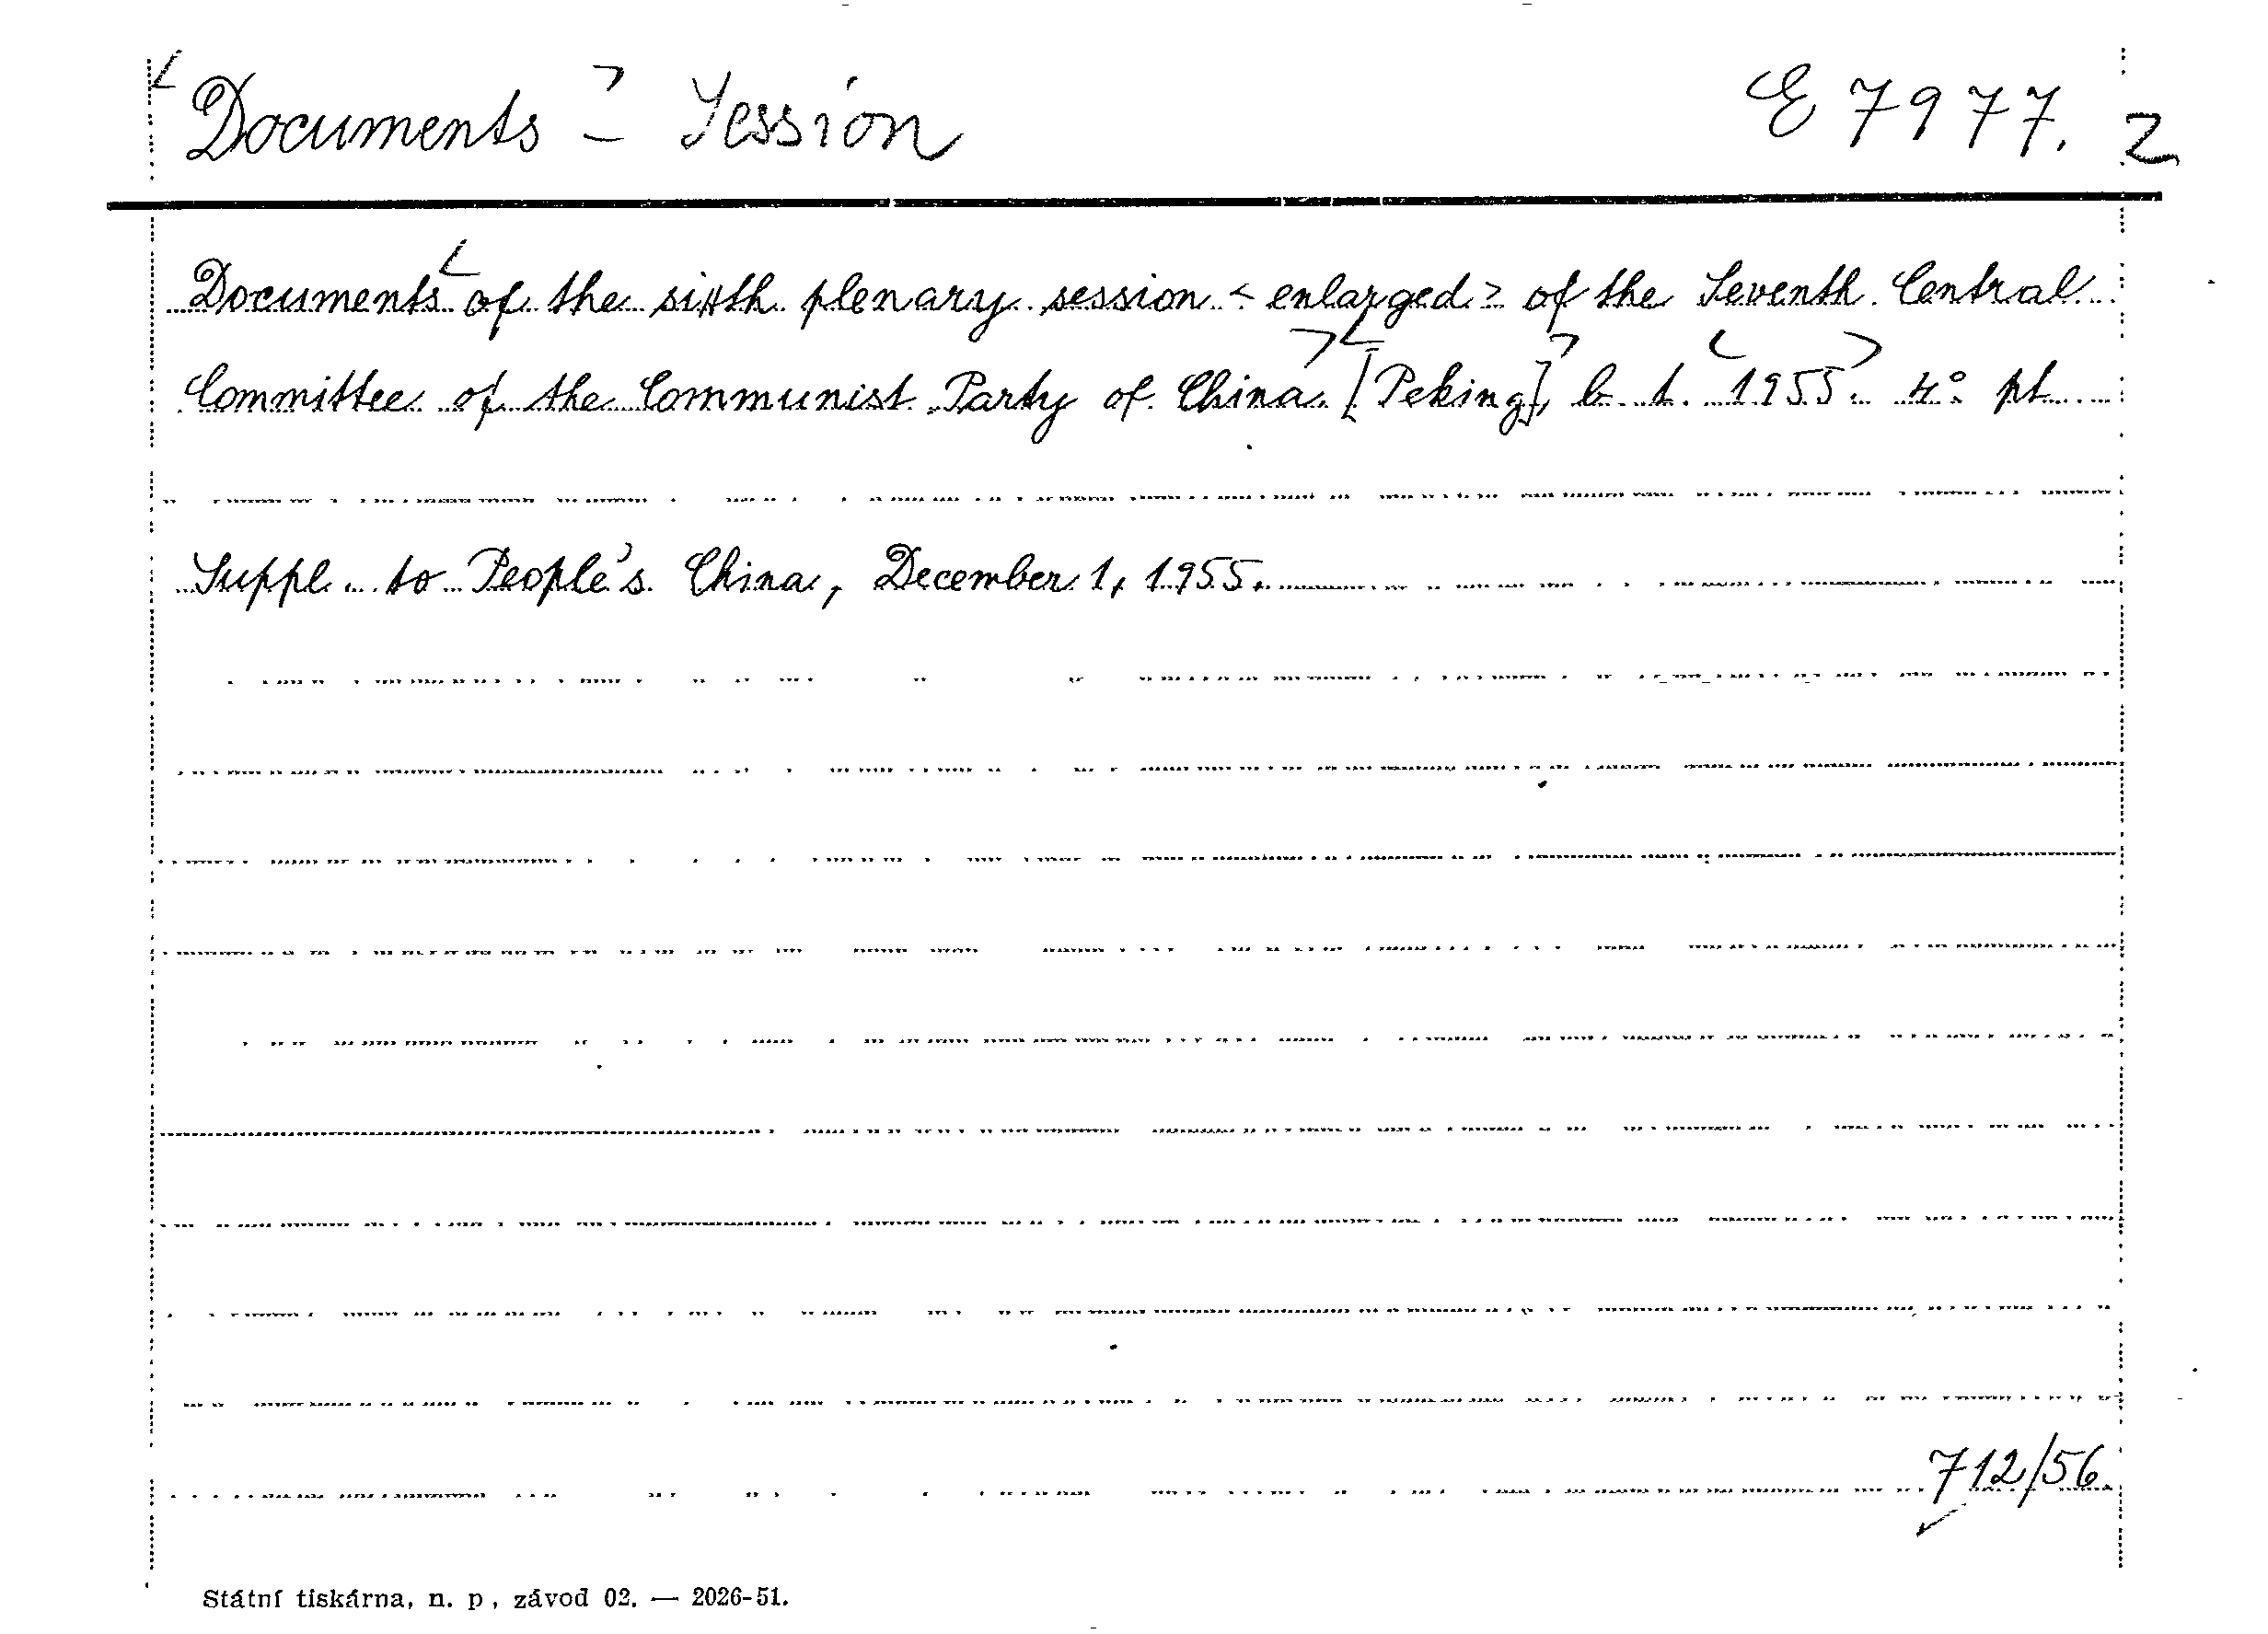 Documents - Session E 7977. 2
Documents of the sixth plenary session < enlarged > of the Seventh Central
Committee of the Communist Party of China. [Peking], b. t. 1955. 4° pt
Suppl. to People's China, December 1, 1955.
712/56.
Státní tiskárna, n. p., závod 02. — 2026-51.